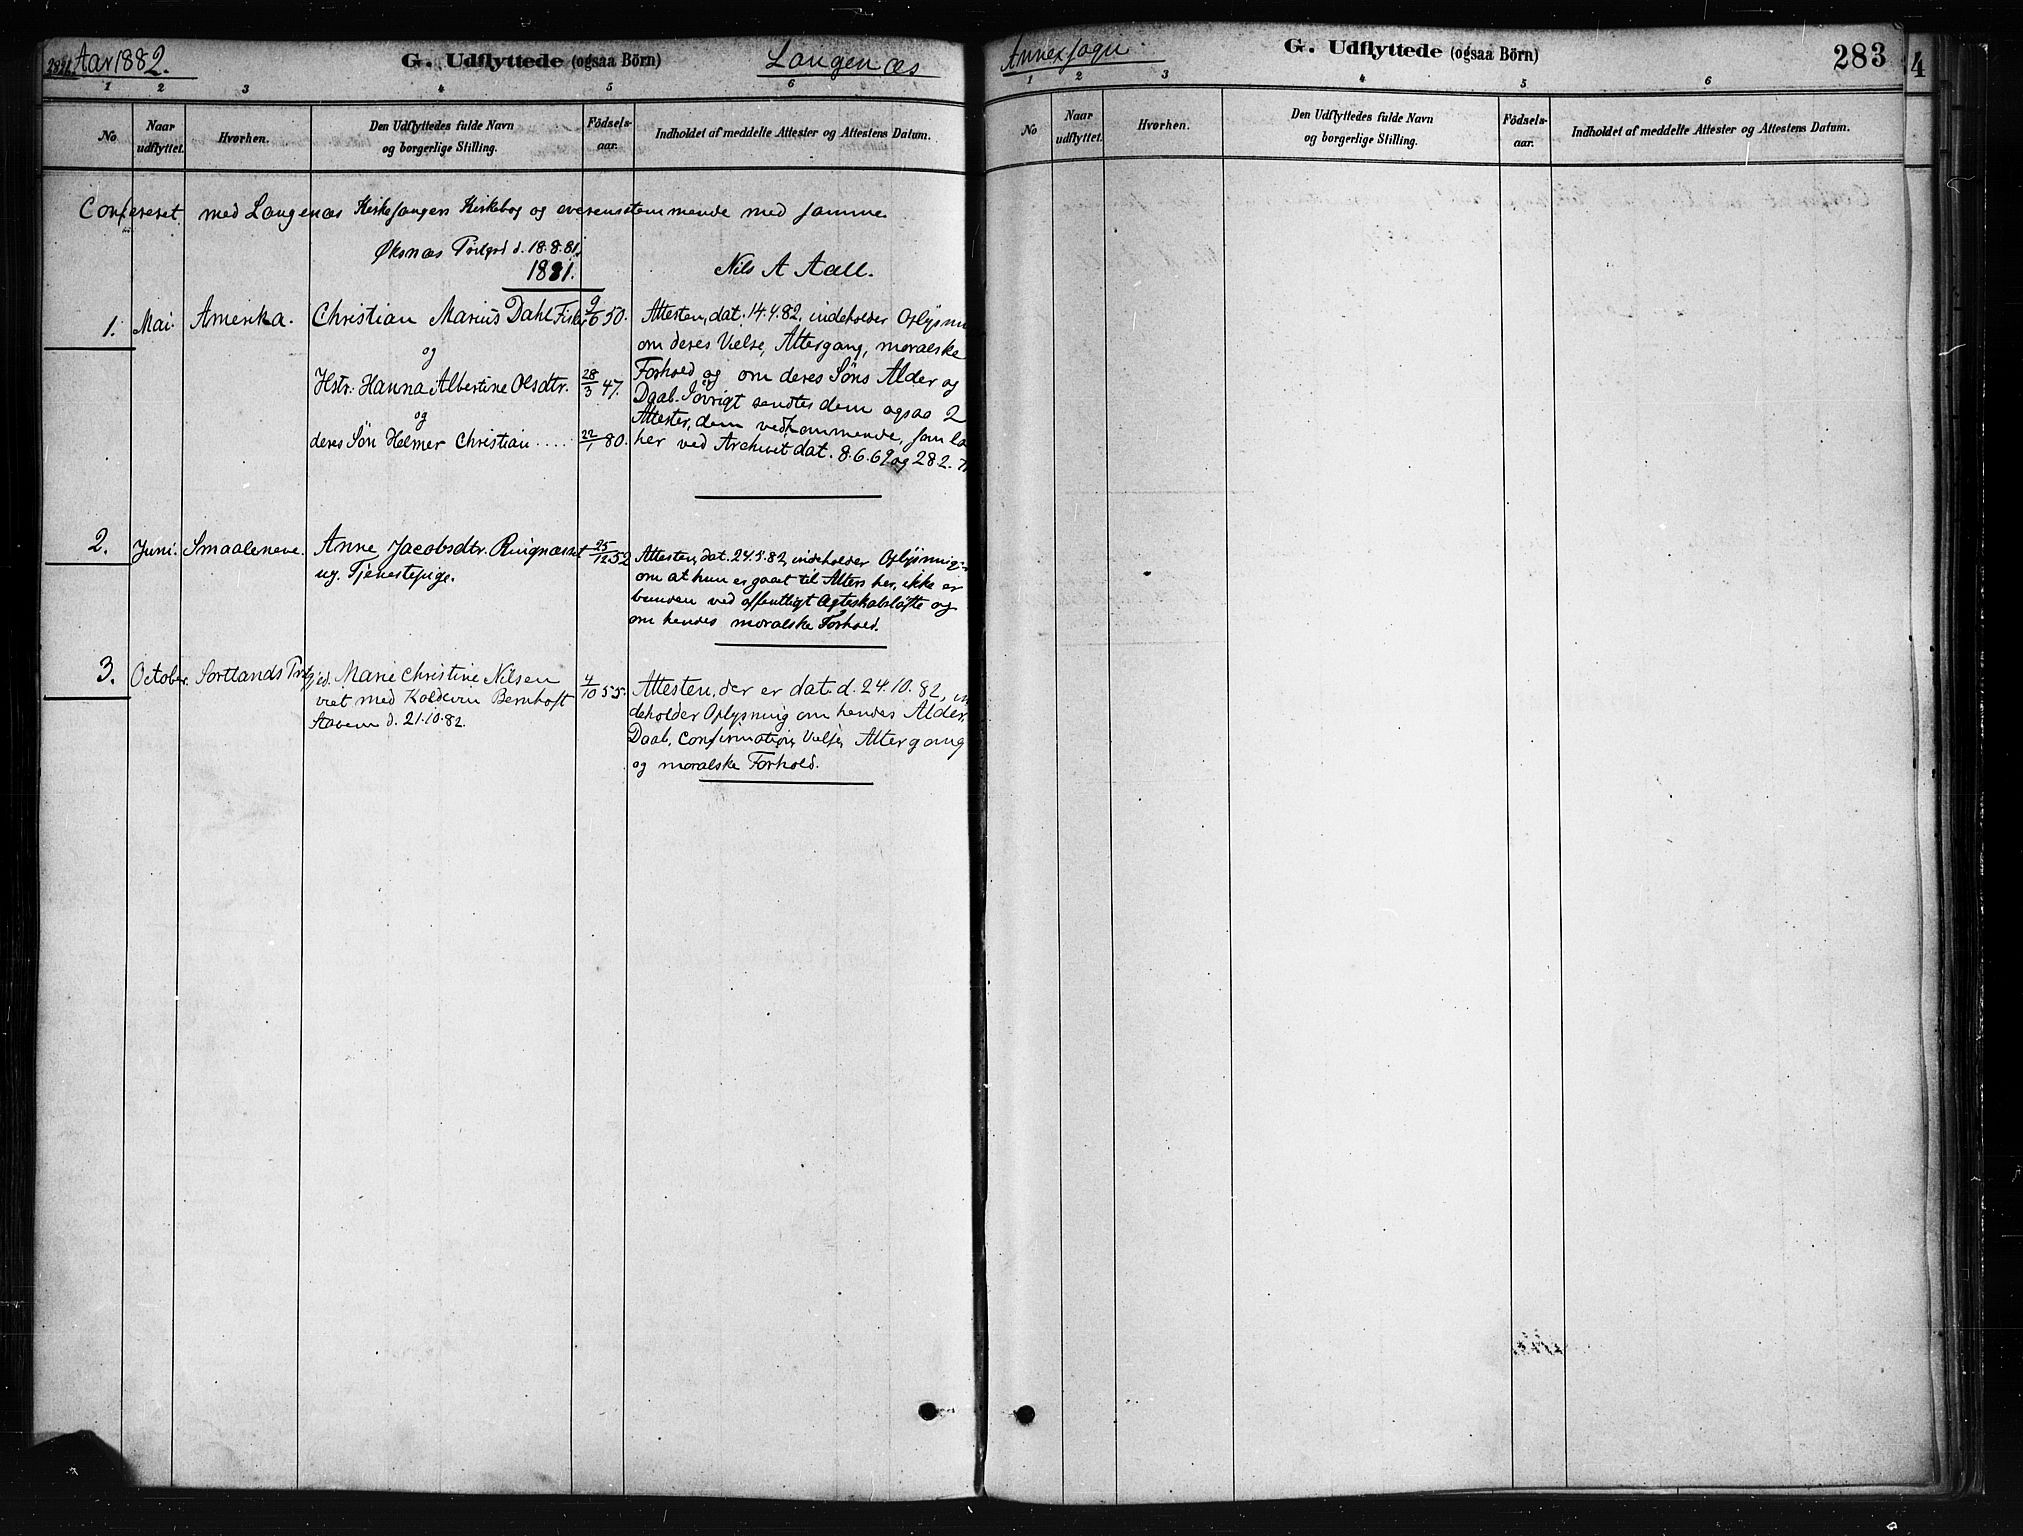 Aar 1882.
G. Udflyttede (ogsaa Börn)
Langenæs
1 2 3 4 5 6
No
Naar udflyttet.
Hvorhen.
Den Udflyttedes fulde Navn
og borgerlige Stilling.
Födsels-
aar.
Indholdet af meddelte Attester og Attestens Datum.
Confereret med Langenæs Kirkesangers Kirkebog og overensstemmende med samme
Øksnæs d. 18.8.81.
1881.
Nils A Aall.
1. Mai. Amerika. Christian Marius Dahl 9/6 50.
og
Hstr. Hanna Albertine Olsdtr. 28/3 47.
og
deres Søn Helmer Christian ..... 22/1 80.
Attesten, dat. 14.4.82, indeholder
om deres Vielse, Altergang, moralske
Forhold og om deres Søns Alder og
Daab. Iøvrigt sendtes dem ogsaa 2
Attester, dem vedkommende, som
her ved Archivet dat. 8.6.69 og 28.2.
2. Juni. Smaalenene. Anne Jacobsdtr. Ringnæsset 25/12 52
ug. Tjenestepige.
Attesten, dat. 24.5.82, indeholder Oplysning
om at hun er gaaet til Alters her, ikke er
bunden ved offentligt Ægteskabsløfte og
om hendes moralske Forhold.
3. October. Sortlands Marie Christine Nilsen 4/10 55.
viet med Koldevin Bernhoft
d. 21.10.82.
Attesten, der er dat. d. 24.10.82, in
deholder Oplysning om hendes Alder,
Daab, Confirmation, Vielse, Altergang
og moralske Forhold.
Annexsogn
G. Udflyttede (ogsaa Börn)
283
4
1 2 3 4 5 6
No
Naar
udflyttet.
Hvorhen.
Den Udflyttedes fulde Navn
og borgerlige Stilling.
Födsels-
aar.
Indholdet af meddelte Attester og Attestens Datum.